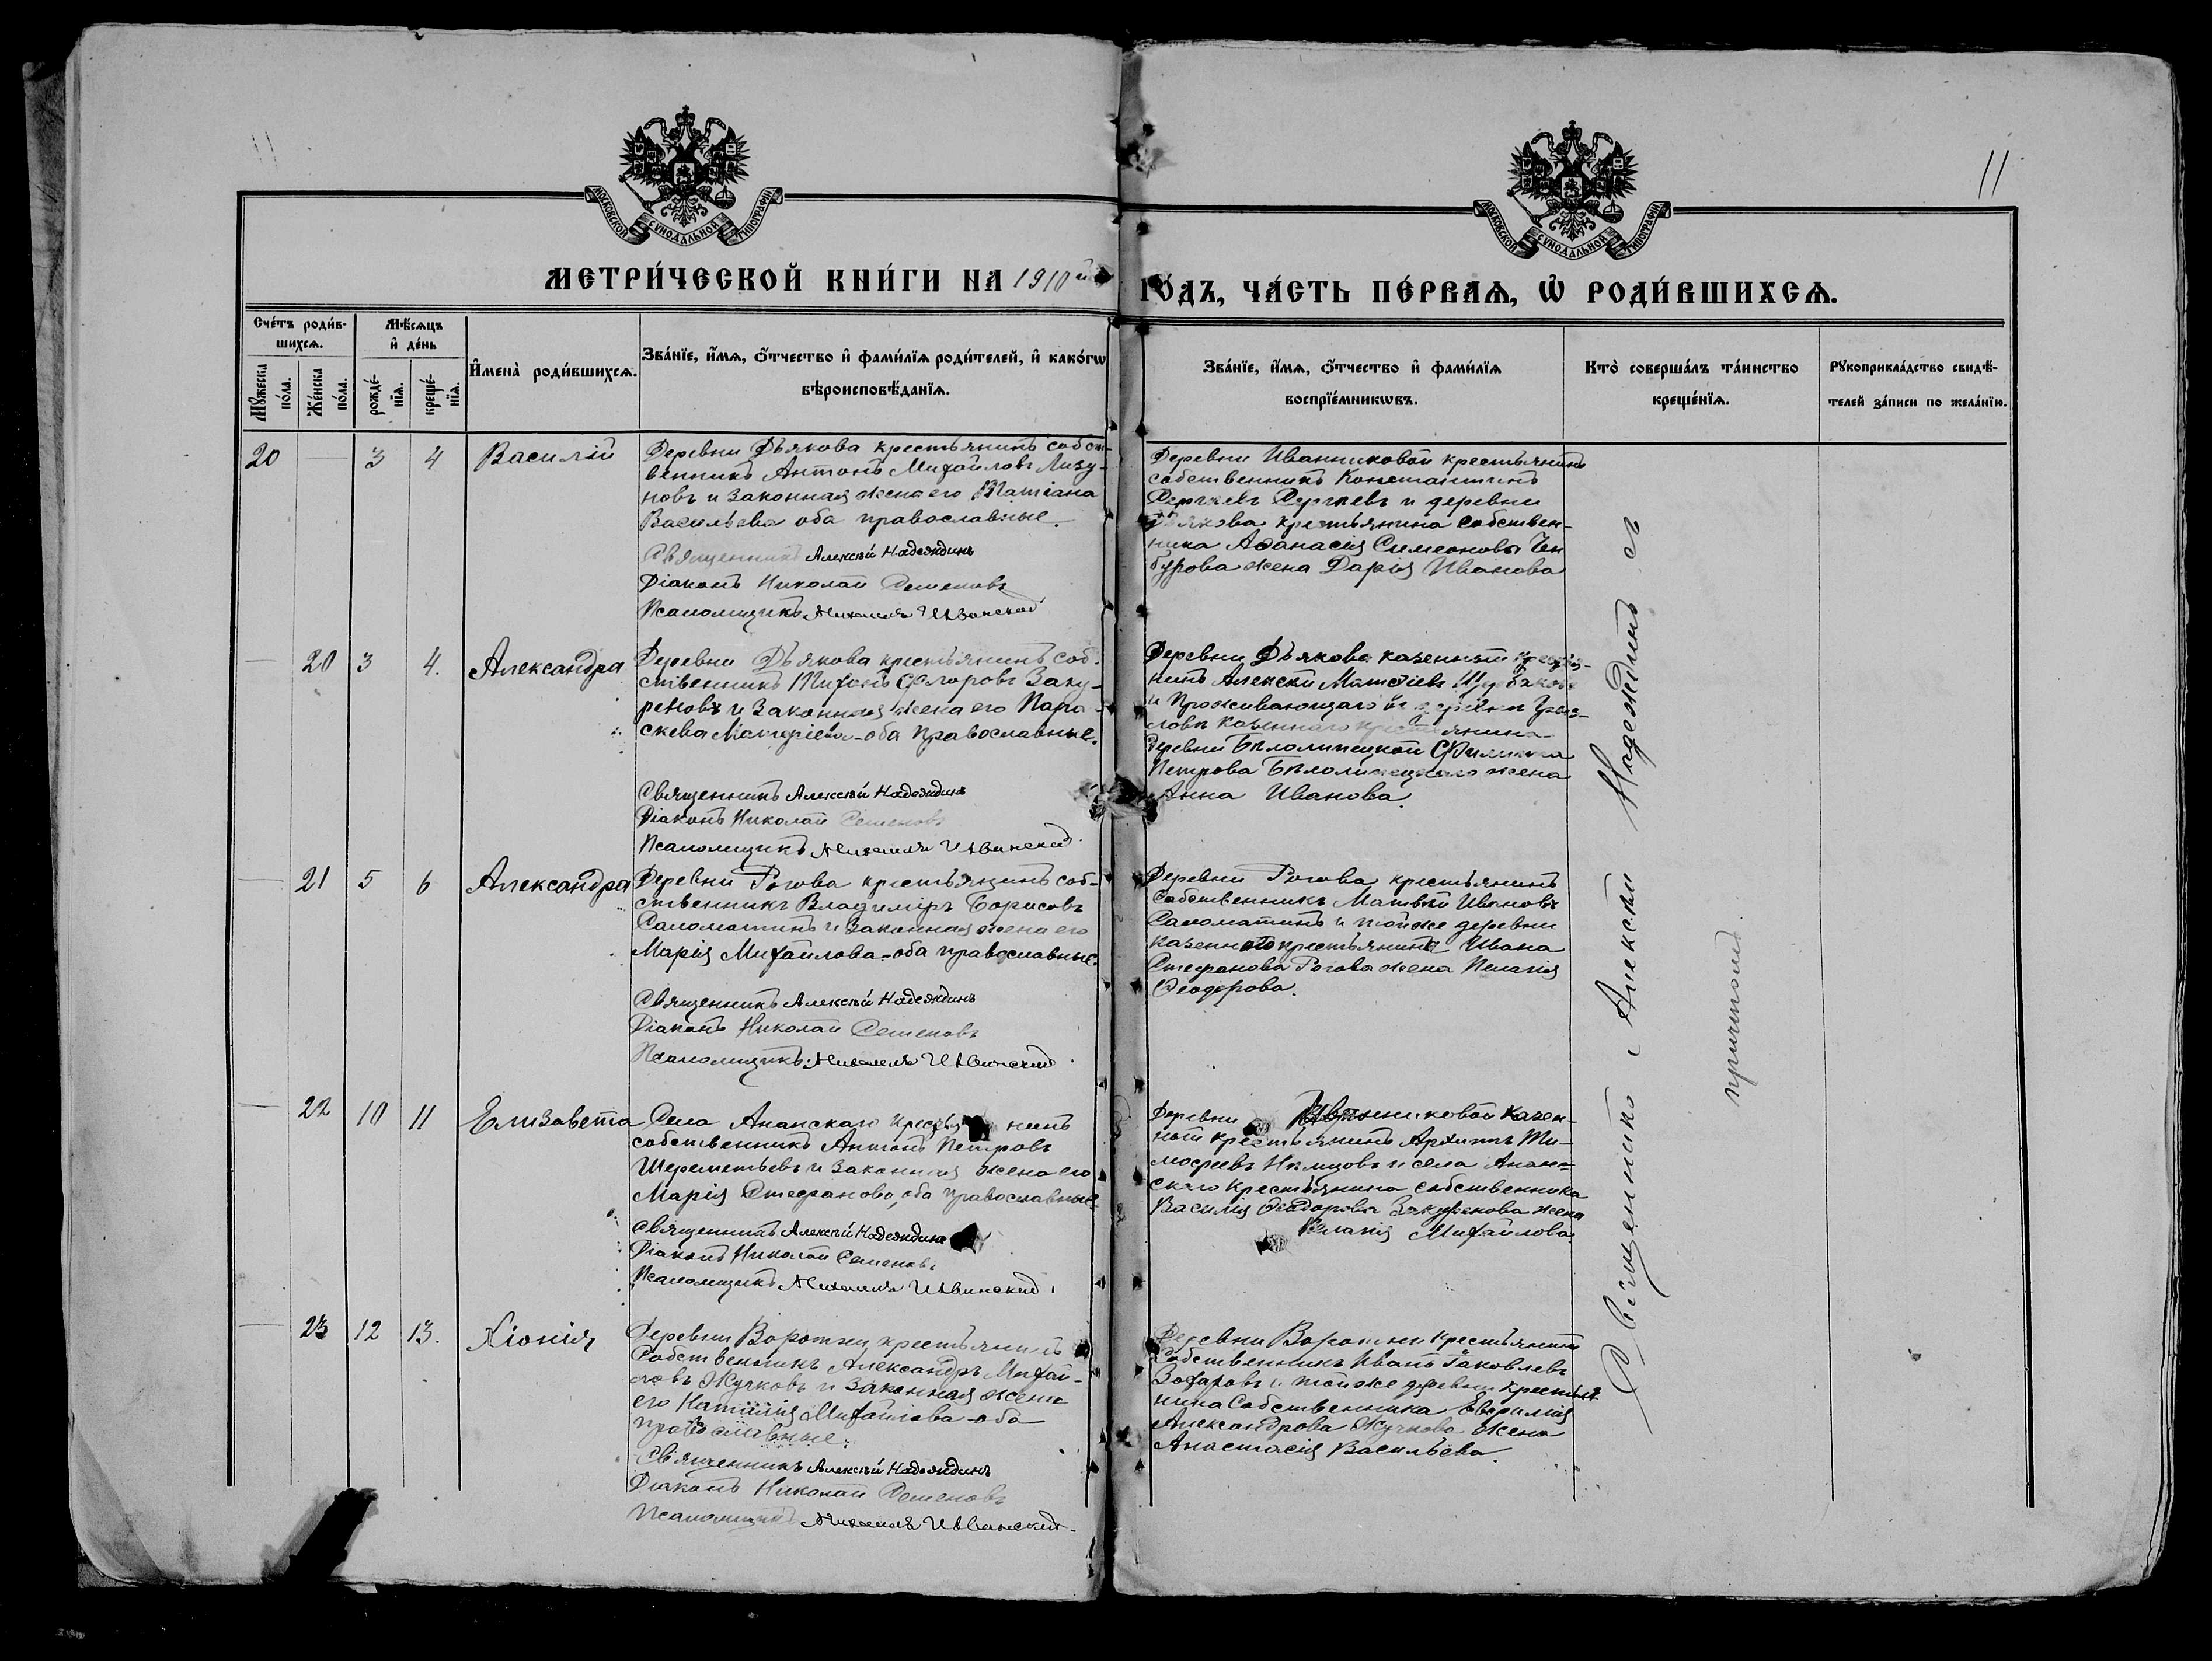 11
МОСКОВСКОЙ СѴНОДАЛЬНОЙ ТИПОГРАФІИ
МОСКОВСКОЙ СѴНОДАЛЬНОЙ ТИПОГРАФІИ
МЕТРИ́ЧЕСКОЙ КНИ́ГИ НА 1910й ГО́ДЪ, ЧА́СТЬ ПЕ́РВАѦ, Ѡ РОДИ́ВШИХСѦ.
Сче́тъ роди́в-
шихсѧ.
Мꙋ́жеска по́ла.
Же́нска по́ла.
Мѣ́сѧцъ
и҆ де́нь
рожде́-
нїѧ.
креще́-
нїѧ.
И҆мена̀ роди́вшихсѧ.
Зва́нїе, и҆́мѧ, ѻ҆́тчество и҆ фами́лїѧ роди́телей, и҆ како́гѡ
вѣроисповѣ́данїѧ.
Зва́нїе, и҆́мѧ, ѻ҆́тчество и҆ фами́лїѧ
воспрїе́мникѡвъ.
Кто̀ соверша́лъ та́инство
креще́нїѧ.
Рꙋкоприкла́дство свидѣ́-
телей за́писи по жела́нїю.
20 — 3 4 Василій
Деревни Дѣякова крестьянинъ собст-
венникъ Антонъ Михайловъ Лизу-
новъ и законная жена его Татіана
Васильева оба православные.
Священникъ Алексѣй Надеждинъ
Діаконъ Николай Семеновъ
Псаломщикъ Михаилъ Ивинскій
Деревни Иванниковой крестьянинъ
собственникъ Константинъ
Сергѣевъ Сергѣевъ и деревни
Дьякова крестьянина собствен-
ника Аѳанасія Симеонова
жена Дарія Иванова
— 20 3 4. Александра
Деревни Дьякова крестьянинъ соб-
ственникъ Тихонъ Флоровъ Заку-
реновъ и законная жена его Пара-
скева Макаріева - оба православные.
Священникъ Алексѣй Надеждинъ
Діаконъ Николай Семеновъ
Псаломщикъ Михаилъ Ивинскій
Деревни Дьякова казенный крестья-
нинъ Алексѣй Матѳіевъ Щербаковъ
и проживающаго въ деревнѣ
казеннаго крестьянина
деревни Бѣлолипецкой Филиппа
Петрова Бѣлолипецкаго жена
Анна Иванова.
— 21 5 6 Александра
Деревни Рогова крестьянинъ соб-
ственникъ Владиміръ Борисовъ
Саломатинъ и законная жена его
Марія Михайлова - оба православные.
Священникъ Алексѣй Надеждинъ
Діаконъ Николай Семеновъ
Псаломщикъ Михаилъ Ивинскій
Деревни Рогова крестьянинъ
собственникъ Матвѣй Ивановъ
Саломатинъ и тойже деревни
казеннаго крестьянина Ивана
Стефанова Рогова жена Пелагія
Ѳеодорова.
— 22 10 11 Елизавета
Села Ананскаго крестьянинъ
собственникъ Антонъ Петровъ
Шереметьевъ и законная жена его
Марія Стефанова, оба православные
Священникъ Алексѣй Надеждинъ
Діаконъ Николай Семеновъ
Псаломщикъ Михаилъ Ивинскій
Деревни Иванниковой казен-
ный крестьянинъ Архипъ Ти-
моѳеевъ Нѣмцовъ и села Анан-
скаго крестьянина собственника
Василія Ѳеодорова Закуренова жена
Пелагія Михайлова.
— 23 12 13. Хіонія
Деревни Воротни крестьянинъ
собственникъ Александръ Михай-
ловъ Жучковъ и законная жена
его Наталія Михайлова - оба
православные.
Священникъ Алексѣй Надеждинъ
Діаконъ Николай Семеновъ
Псаломщикъ Михаилъ Ивинскій
Деревни Воротни крестьянинъ
собственникъ Иванъ Іаковлевъ
Захаровъ и тойже деревни крестья-
нина собственника Евѳимія
Александрова Жучкова жена
Анастасія Васильева.
Священникъ Алексѣй Надеждинъ съ
причтомъ.